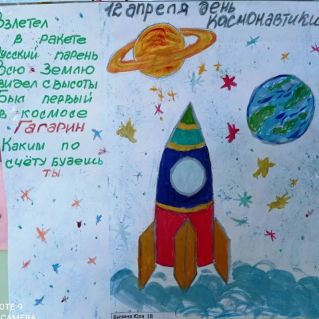 12 апреля день
космонавтики
взлетел
в ракете
Русский парень
Всю Землю
видел с высоты
Был первый
в космосе
Гагарин
Каким по
счёту будешь
ты
1В